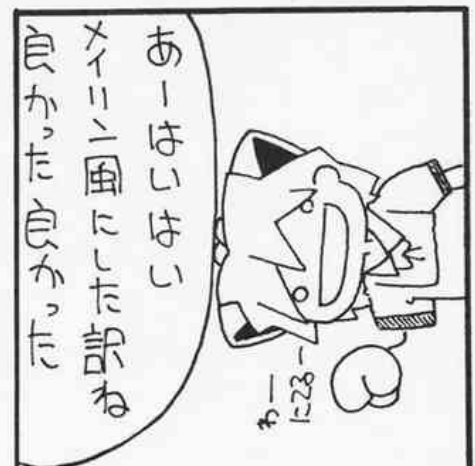 あーはいはい
メイリン風にした訳ね
良かった良かった
わー
にてるー